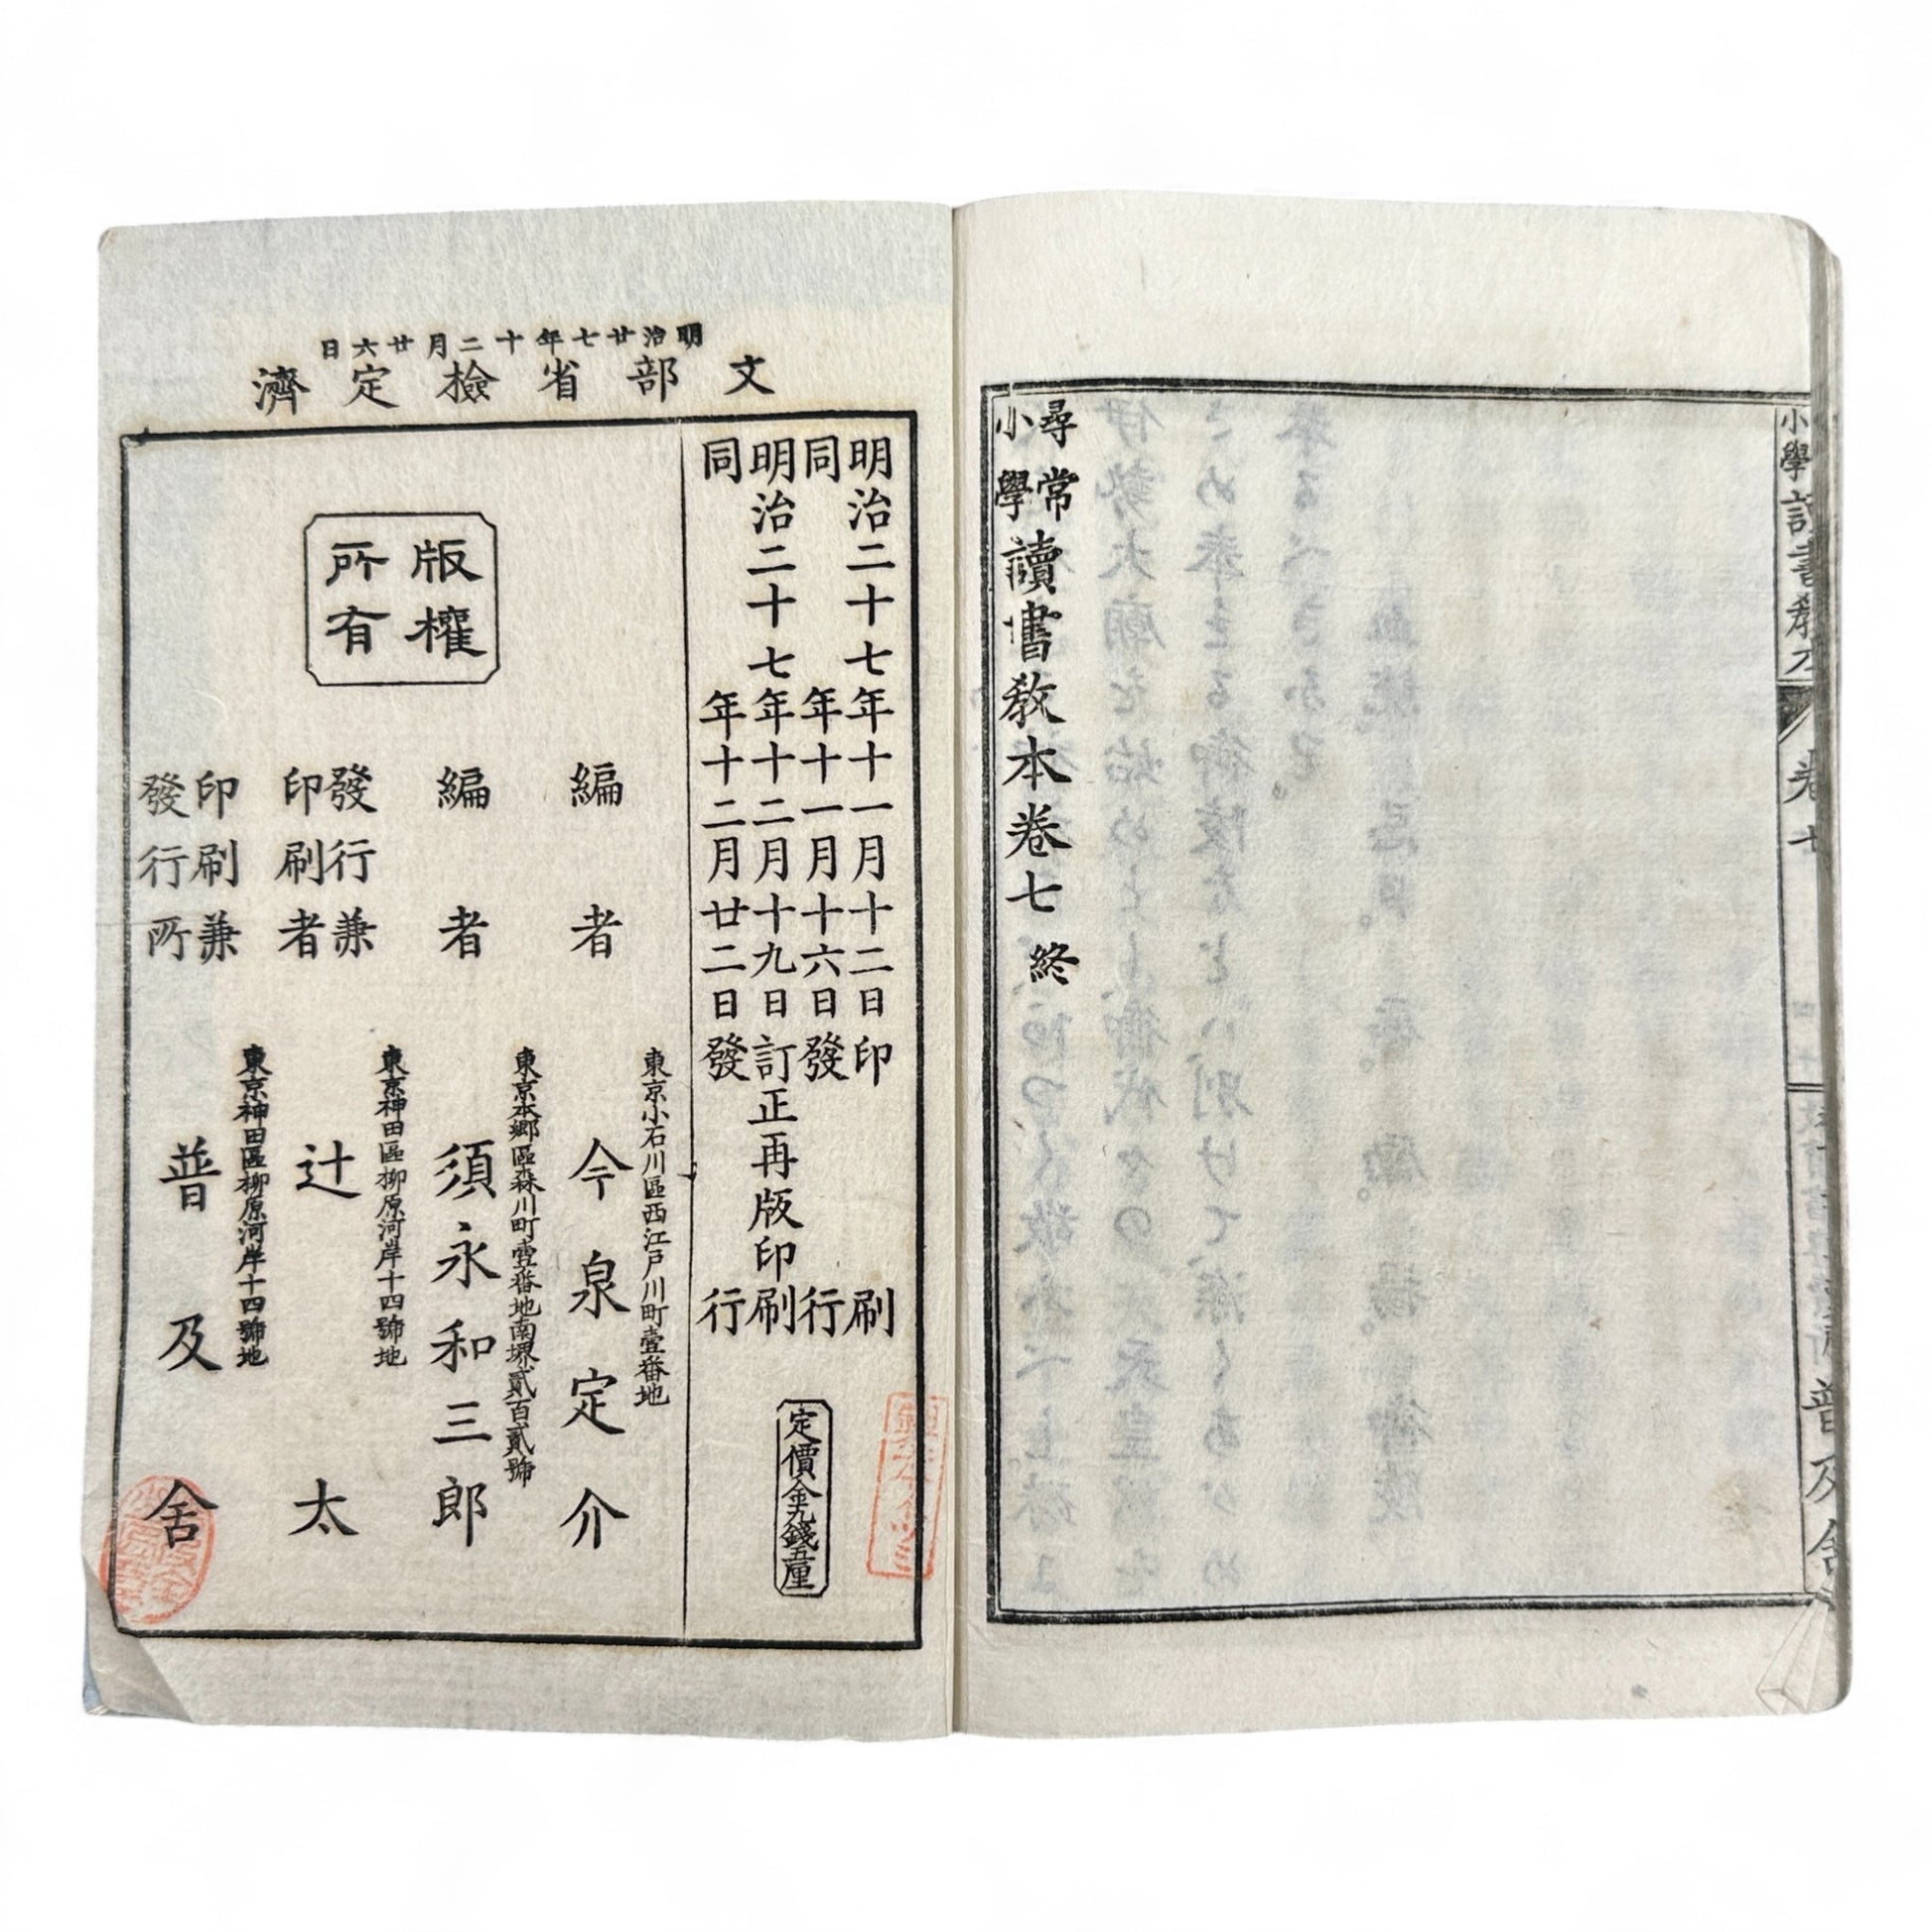 小學讀書教本
卷七
普及舍
尋常
小學
讀書教本卷七 終
明治廿七年十二月廿六日
文部省檢定濟
明治二十七年十一月十二日印刷
同年十一月十六日發行
明治二十七年十二月十九日訂正再版印刷
同年十二月廿二日發行
定價金九錢五厘
版權
所有
東京小石川區西江戸川町壹番地
編者 今泉定介
東京本郷區森川町壹番地南堺貳百貳號
編者 須永和三郎
東京神田區柳原河岸十四號地
發行兼
印刷者 辻太
東京神田區柳原河岸十四號地
印刷兼
發行所 普及舍